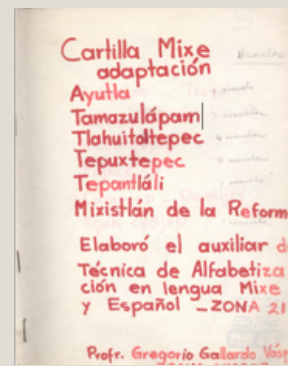 Cartilla Mixe
adaptación
Ayutla
Tamazulápam
Tlahuitoltepec
Tepuxtepec
Tepantláli
Mixistlán de la Reform
Elaboró el auxiliar d
Técnica de Alfabetiza
ción en lengua Mixe
y Español - ZONA 21
Profr. Gregorio Gallardo Vásq